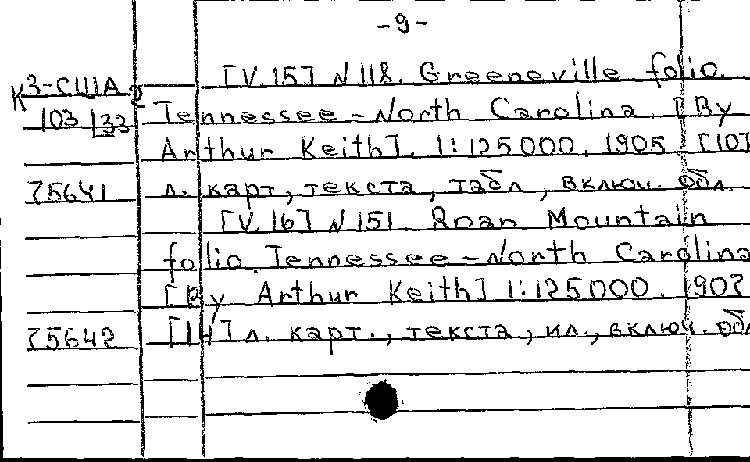 -9-
[V.15] N 118. Greeneville folio.
К3-США 2
103 133
Tennessee-North Carolina. [By
Arthur Keith]. 1:125000. 1905 [10]
75641 л. карт, текста, табл, включ. обл.
[V.16] N 151. Roan Mountain
folio. Tennessee-North Carolina
[By Arthur Keith] 1:125000. 1907
75642 [14] л. карт., текста, ил., включ. обл